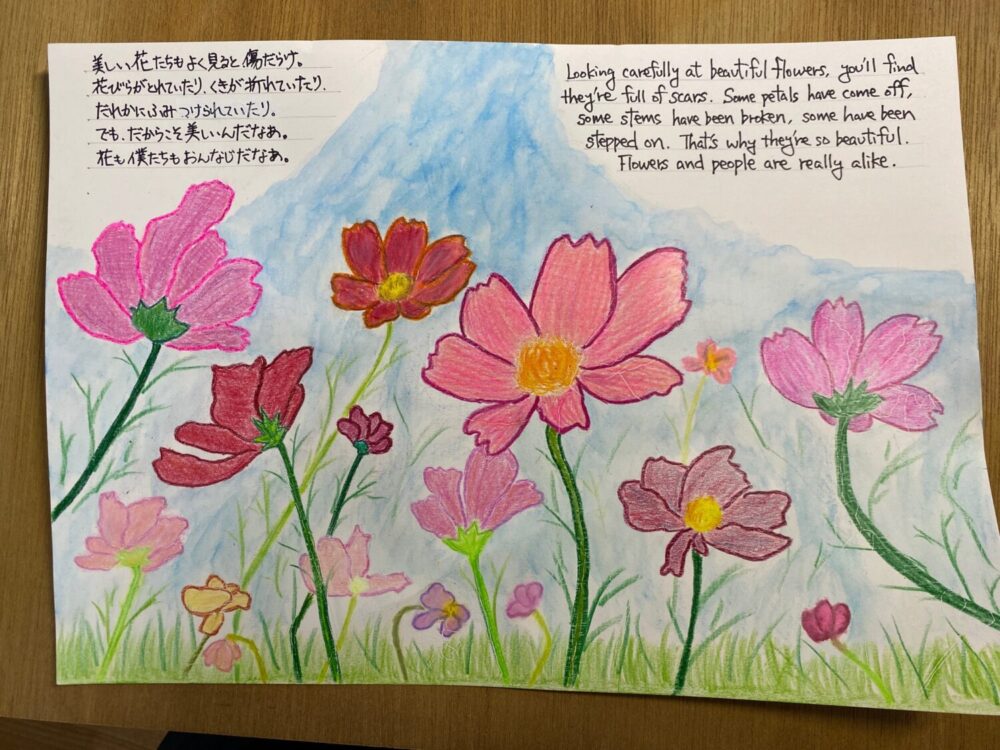 美しい花たちもよく見ると傷だらけ。
花びらがとれていたり、くきが折れていたり、
だれかにふみつけられていたり。
でも、だからこそ美しいんだなあ。
花も僕たちもおんなじだなあ。
Looking carefully at beautiful flowers, you'll find
they're full of scars. Some petals have come off,
some stems have been broken, some have been
stepped on. That's why they're so beautiful.
Flowers and people are really alike.